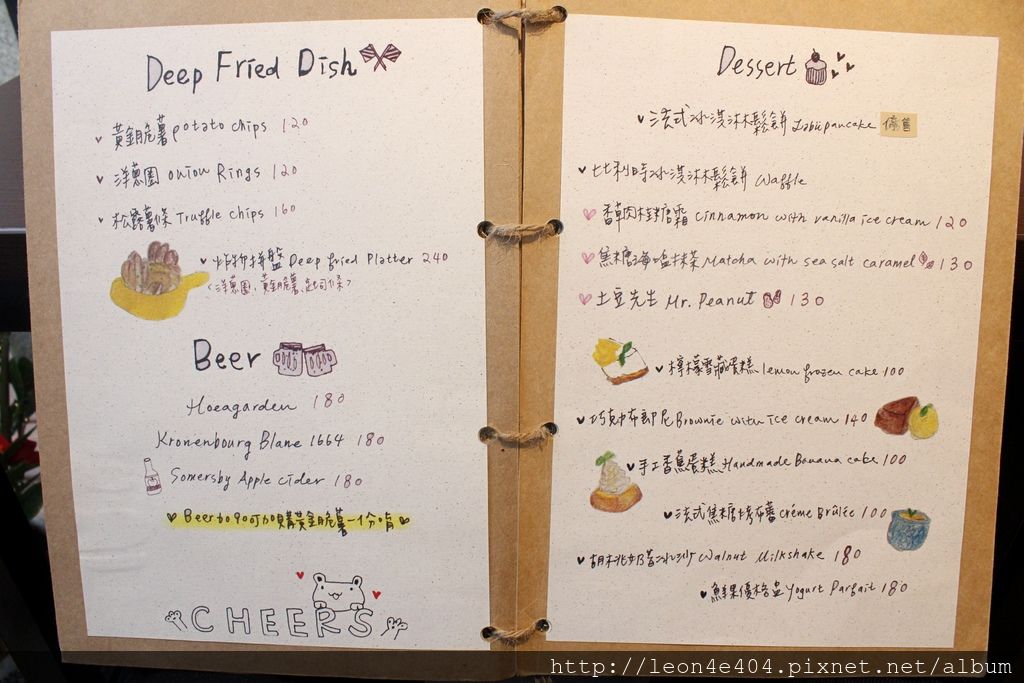 Deep Fried Dish
黃金脆薯 potato chips 120
洋蔥圈 onion Rings 120
松露薯條 Truffle chips 160
炸物拼盤 Deep fried Platter 240
(洋蔥圈、黃金脆薯、起司條)
Beer
Hoeagarden 180
Kronenbourg Blanc 1664 180
Somersby Apple cider 180
Beer加90可加購黃金脆薯一份唷
CHEERS
Dessert
法式冰淇淋鬆餅 pancake 停售
比利時冰淇淋鬆餅 Waffle
香草肉桂糖霜 cinnamon with vanilla ice cream 120
焦糖海鹽抹茶 Matcha with sea salt caramel 130
土豆先生 Mr. Peanut 130
檸檬雪藏蛋糕 lemon frozen cake 100
巧克力布朗尼 Brownie with ice cream 140
手工香蕉蛋糕 Handmade Banana cake 100
法式焦糖烤布蕾 créme Brûlée 100
胡桃奶昔冰沙 Walnut Milkshake 180
鮮果優格盅 Yogurt Parfait 180
http://leon4e404.pixnet.net/album